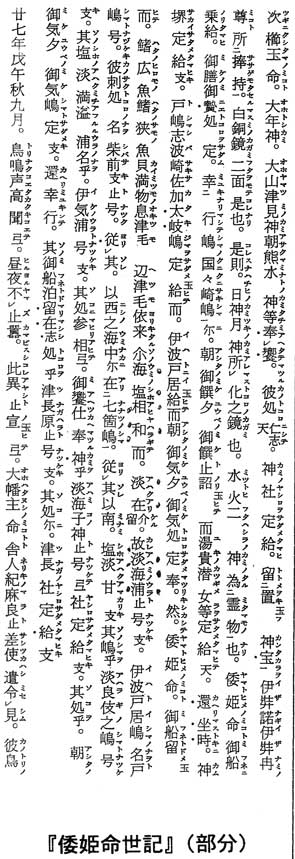 次櫛玉命。大年神。大山津見神朝熊水神等奉饗。彼処仁神社定給。留置神宝伊弉諾伊弉冉
尊所捧持白銅鏡二面是也。是則日神月神所化之鏡也。水火二神為霊物也。倭姫命御船
乗給。御膳御贄処定。幸行嶋国々崎嶋尓。朝御饌夕御饌止詔而湯貴潜女等定給天。還坐時。神
堺定給支。戸嶋志波崎佐加太岐嶋定給而。伊波戸居給而朝御気夕御気処定奉。然倭姫命。御船留
而。鰭広魚鰭狭魚貝満物息津毛辺津毛依来。介海塩相和而。淡在介留。故淡海浦止号支。伊波戸居嶋名戸
嶋号。彼刺処名柴前支止号。従其以西之海中尓在七箇嶋。従其以南塩淡甘支其嶋乎淡良伎之嶋号
支。其塩淡満溢浦名乎。伊気浦号支。其処参相弖。御饗仕奉神乎淡海子神止号弖社定給支。其処乎。朝
御気夕御気嶋定支。還幸行。其御船泊留在志処乎津長原止号支。其処尓。津長社定給支
廿七年戊午秋九月。鳥鳴声高聞弖。昼夜不止囂。此異止宣弖。大幡主命舎人紀麻良止差使遣令見。彼鳥
『倭姫命世記』(部分)